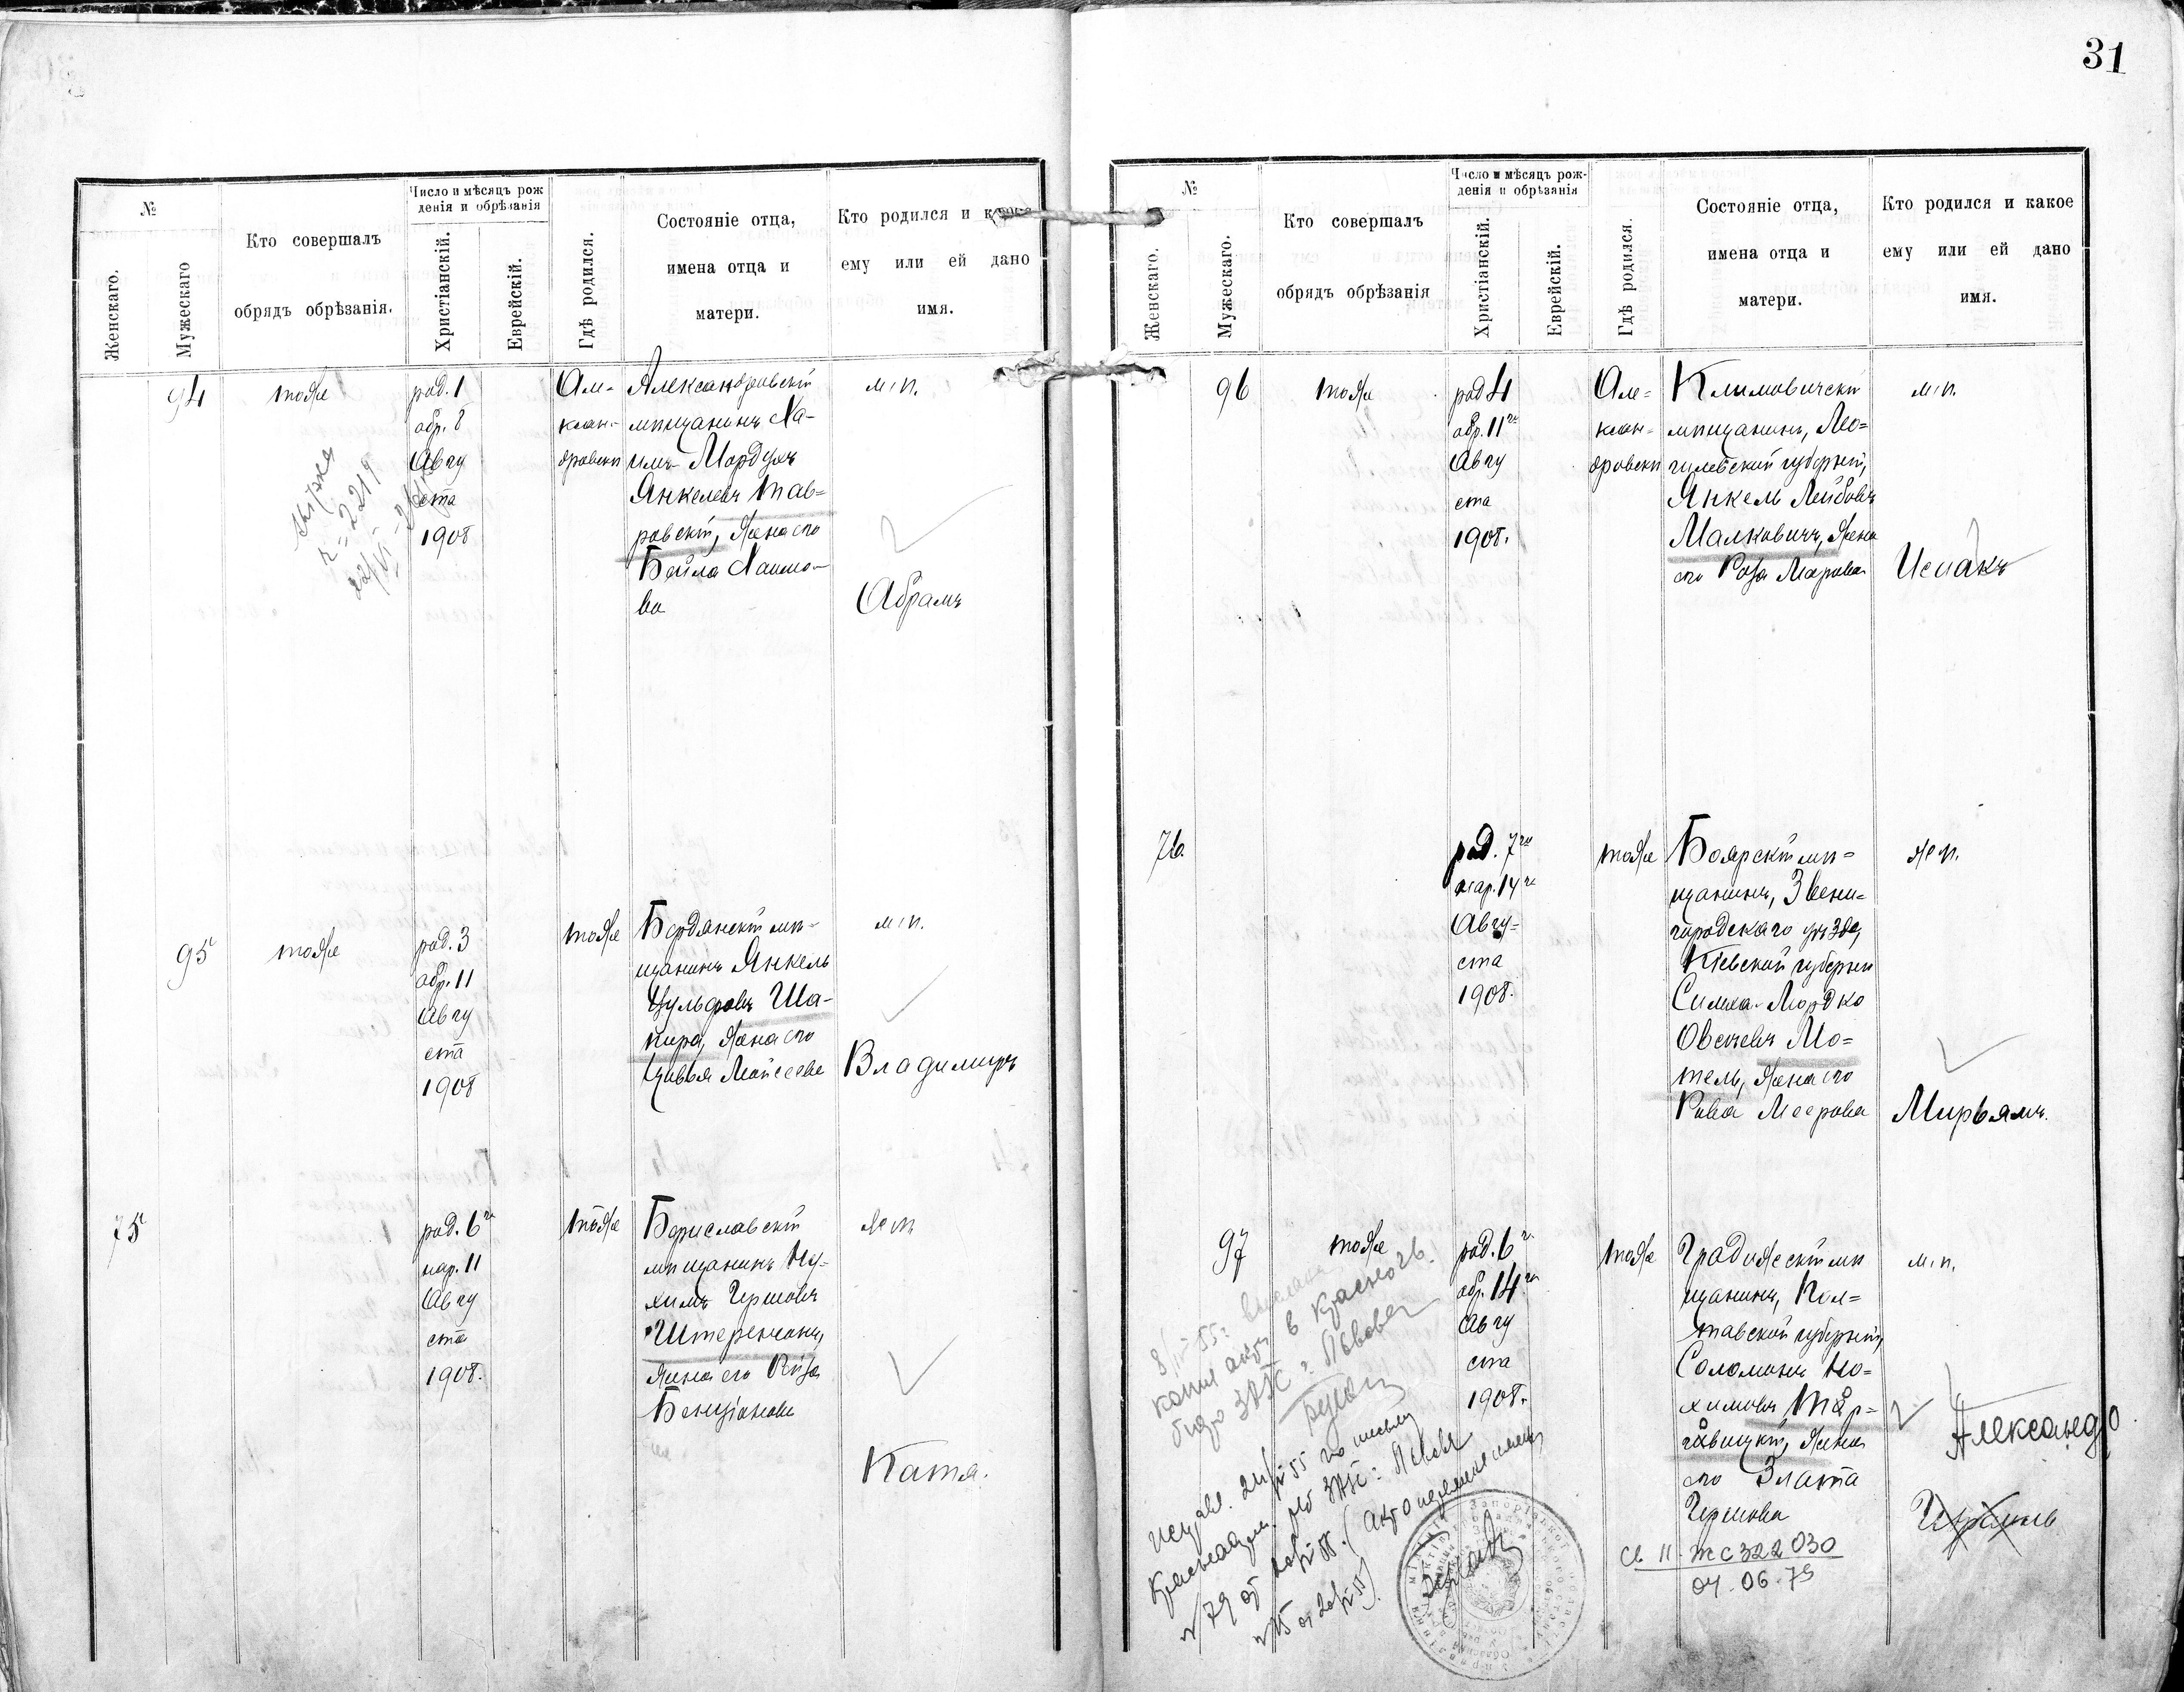 31
№
Женскаго.
Мужескаго
Кто совершалъ
обрядъ обрѣзанія.
Число и мѣсяцъ рож
денія и обрѣзанія
Христіанскій.
Еврейскій.
Гдѣ родился.
Состояніе отца,
имена отца и
матери.
Кто родился и какое
ему или ей дано
имя.
94
тоже
род. 1
обр. 8
Авгу
ста
1908
Але-
ксан-
дровскѣ
Александровскій
мѣщанинъ Ха-
имъ-Мордухъ
Янкелевъ Тав-
ровскій, жена его
Бейла Хаимо-
ва
м. п.
Абрамъ
№ 2219
95
тоже
род. 3
обр. 11
Авгу
ста
1908
тоже
Бердянскій мѣ-
щанинъ Янкель
Вульфовъ Ша-
пиро, жена его
Цивья Моисеева
м. п.
Владимиръ
75
род. 6го
нар. 11
Авгу
ста
1908.
тоже
Бориславскій
мѣщанинъ Ну-
химъ Гершовъ
Штеренсонъ,
жена его Ройза
Бенціонова
ж. п.
Катя.
№
Женскаго.
Мужескаго.
Кто совершалъ
обрядъ обрѣзанія
Число и мѣсяцъ рож-
денія и обрѣзанія
Христіанскій.
Еврейскій.
Гдѣ родился.
Состояніе отца,
имена отца и
матери.
Кто родился и какое
ему или ей дано
имя.
96
тоже
род 4
обр. 11го
Авгу
ста
1908.
Але-
ксан-
дровскѣ
Климовичскій
мѣщанинъ, Мо-
гилевской губерніи,
Янкель Лейбовъ
Малковичъ, жена
его Роза Маркова
м. п.
Исаакъ
76
род. 7го
нар. 14го
Авгу-
ста
1908.
тоже
Боярскій мѣ-
щанинъ, Звени-
городскаго уѣзда,
Кіевской губерніи
Симха-Мордко
Овсеевъ Мо-
тель, жена его
Рива Меерова
ж п.
Мирьямъ.
97
тоже
род. 6го
обр. 14го
Авгу
ста
1908.
тоже
Градижскій мѣ
щанинъ, Пол-
тавской губерніи,
Соломонъ Но-
химовъ Тар-
говицкій, жена
его Злата
Гершова
м. п.
Александр
Израиль
копия акта в
бюро ЗАГС г. Львова
Исправ. 21/IV 55 по письму
ЗАГС г. Львова
№ 79 от
№ 15 от 20/IV 55)
Св II жс 322030
04.06.79